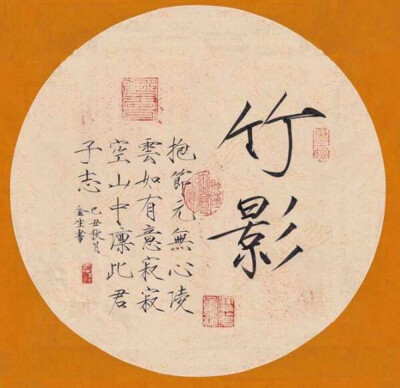 竹影
抱節元無心陵
雲如有意寂寂
空山中凜此君
子志
己丑秋月
金生書